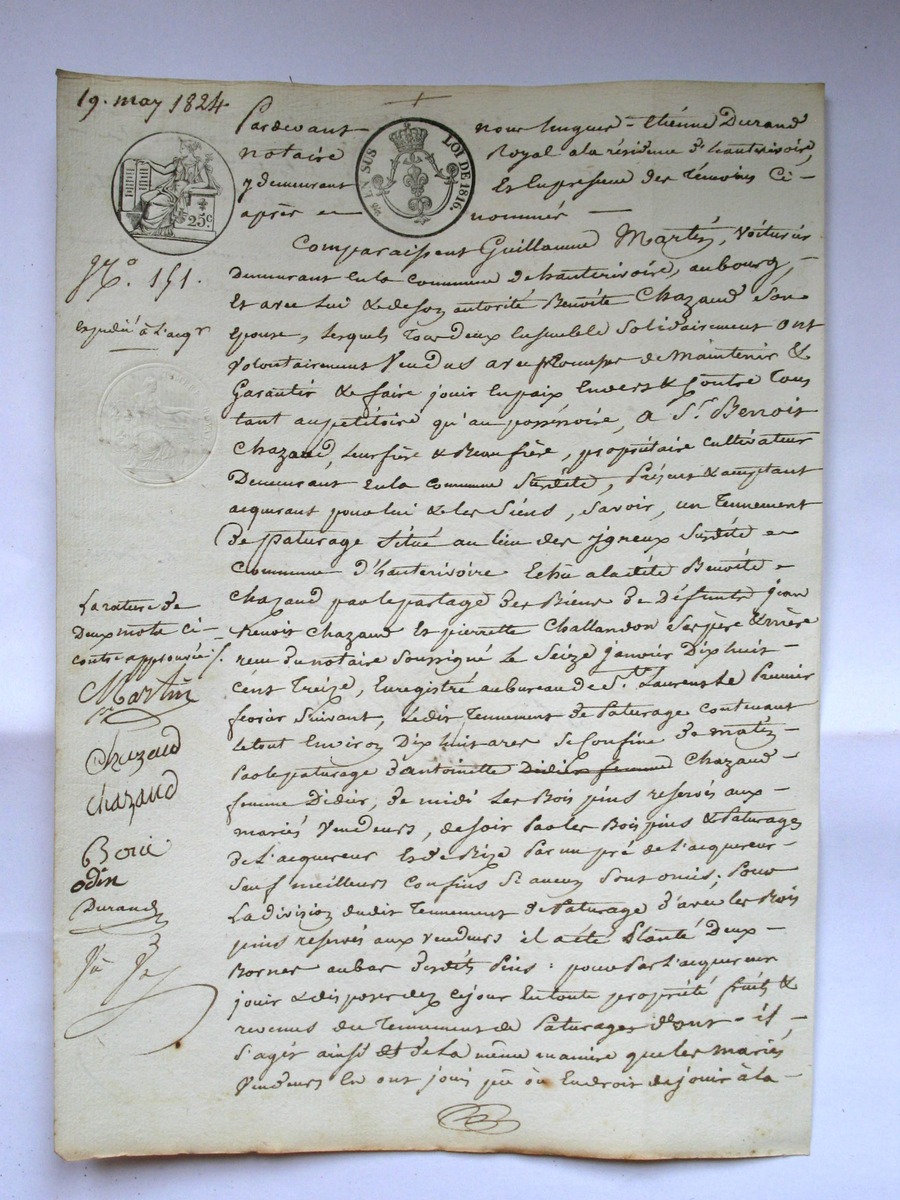 19. may 1824
Pardevant nous hugues-Etienne Durand
notaire Royal ala résidence d'hauterivoire,
y demeurant Et En presence des Temoins Ci-
après nommés —
EN SUS
LOI DE 1816.
25c.
Comparaissent Guillaume Martin, Voiturier
N.º 151.
Demeurant En la Commune de hauterivoire, au bourg,
Et avec Lui & de son autorité Benoite Chazaud son
expédié à l'acqr
Epouse, Lesquels Tous deux Ensemble Solidairement ont
Volontairement Vendus avec promesse de Maintenir &
Garantir & faire jouir En paix Envers & Contre Tous
tant au pétitoire qu'au possessoire, a Sr. Benoit
Chazaud, Leur frère & Beau frère, propriétaire Cultivateur
Demeurant En la Commune Susdite, Présent & acceptant
acquerant pour lui & les Siens, Savoir, un Tennement
de paturage Situé au lieu des Susdite
Commune d'hauterivoire Echu a la dite Benoite
Chazaud par le partage des Biens de Défunts jean
Benoit Chazaud Et pierrette Challandon Ses père & mère
La rature de
Deux mots ci-
contre approuvée
reçu du notaire Soussigné Le Seize janvier Dix huit
Cent Treize, Enregistré au bureau de St. Laurent Le Premier
fevrier Suivant, Ledit Tennement de Paturage Contenant
Le tout Environ Dix huit ares Se Confine de matin
Par le paturage d'antoinette Didier femme Chazaud
femme Didier, de midi Les Bois pins reservés aux
mariés Vendeurs, de soir Par les Bois pins & Paturages
de L'acquereur Et de Bize Par un pré de L'acquereur
Sauf meilleurs Confins Si aucun Sont omis; Pour
La division dudit Tennement de Paturage d'avec les Bois
pins reservés aux Vendeurs il a été Planté Deux
Bornes au bas desdits Pins: pour Par L'acquereur
jouir & disposer dez ce jour En toute propriété fruits &
revenus du Tennement de Paturages dont il
S'agit ainsi & de la même maniere que les mariés
Vendeurs En ont joui pû ou En droit de jouir à la
Martin
Chazaud
Chazaud
odin
Durand